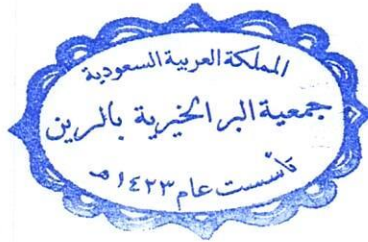 المملكة العربية السعودية
جمعية البر الخيرية بالرين
تأسست عام ١٤٢٣هـ